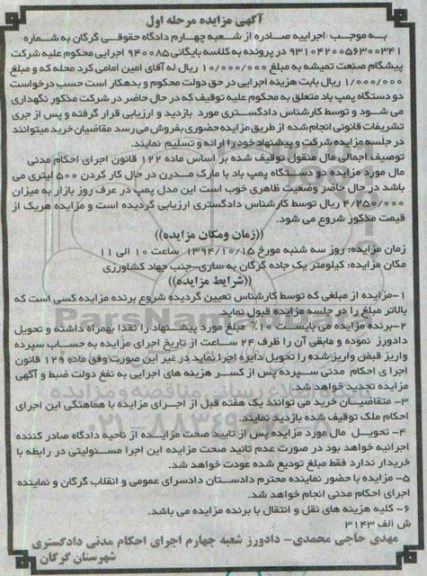 آگهی مزایده مرحله اول
به موجب اجراییه صادره از شعبه چهارم دادگاه حقوقی گرگان به شماره
۹۳۱۰۴۲۰۰۵۶۳۰۰۳۴۱ در پرونده به کلاسه بایگانی ۹۴۰۰۸۵ اجرایی محکوم علیه شرکت
پیشگام صنعت تمیشه به مبلغ ۱۰/۰۰۰/۰۰۰ ریال له آقای امین امامی کرد محله که و مبلغ
۱/۰۰۰/۰۰۰ ریال بابت هزینه اجرایی در حق دولت محکوم و بدهکار است حسب درخواست
دو دستگاه پمپ باد متعلق به محکوم علیه توقیف که در حال حاضر در شرکت مذکور نگهداری
می شود و توسط کارشناس دادگستری مورد بازدید و ارزیابی قرار گرفته و پس از جری
تشریفات قانونی انجام شده از طریق مزایده حضوری بفروش می رسد متقاضیان خرید میتوانند
در جلسه مزایده شرکت و پیشنهاد خود را ارائه و تسلیم نمایند.
توصیف اجمالی مال منقول توقیف شده بر اساس ماده ۱۲۲ قانون اجرای احکام مدنی
مال مورد مزایده دو دستگاه پمپ باد با مارک مدرن در حال کار کردن ۵۰۰ لیتری می
باشد در حال حاضر وضعیت ظاهری خوب است این مدل پمپ در عرف روز بازار به میزان
۴/۲۵۰/۰۰۰ ریال توسط کارشناس دادگستری ارزیابی گردیده است و مزایده هریک از
قیمت مذکور شروع می شود.
((زمان ومکان مزایده))
زمان مزایده: روز سه شنبه مورخ ۱۳۹۴/۱۰/۱۵ ساعت ۱۰ الی ۱۱
مکان مزایده: کیلومتر یک جاده گرگان به ساری-جنب جهاد کشاورزی
((شرایط مزایده))
۱-مزایده از مبلغی که توسط کارشناس تعیین گردیده شروع برنده مزایده کسی است که
بالاتر مبلغ را در جلسه مزایده قبول نماید
۲-برنده مزایده می بایست ۱۰٪ مبلغ مورد پیشنهاد را نقدا بهمراه داشته و تحویل
دادورز نموده و مابقی آن را ظرف ۲۴ ساعت از تاریخ اجرای مزایده به حساب سپرده
واریز قبض واریز شده را تحویل دایره اجرا نماید در غیر این صورت وفق ماده ۱۲۹ قانون
اجرا ی احکام مدنی سپرده پس از کسر هزینه های اجرایی به نفع دولت ضبط و آگهی
مزایده تجدید خواهد شد.
۳- متقاضیان خرید می توانند یک هفته قبل از اجرای مزایده با هماهنگی این اجرای
احکام ملک توقیف شده بازدید نمایند.
۴- تحویل مال مورد مزایده پس از تایید صحت مزایده از ناحیه دادگاه صادر کننده
اجرائیه خواهد بود در صورت عدم تائید صحت مزایده این اجرا مسئولیتی در رابطه با
خریدار ندارد فقط مبلغ تودیع شده عودت خواهد شد.
۵- مزایده با حضور نماینده محترم دادستان دادسرای عمومی و انقلاب گرگان و نماینده
اجرای احکام مدنی انجام خواهد شد.
۶- کلیه هزینه های نقل و انتقال با برنده مزایده می باشد.
ش الف ۳۱۴۳
مهدی حاجی محمدی- دادورز شعبه چهارم اجرای احکام مدنی دادگستری
شهرستان گرگان